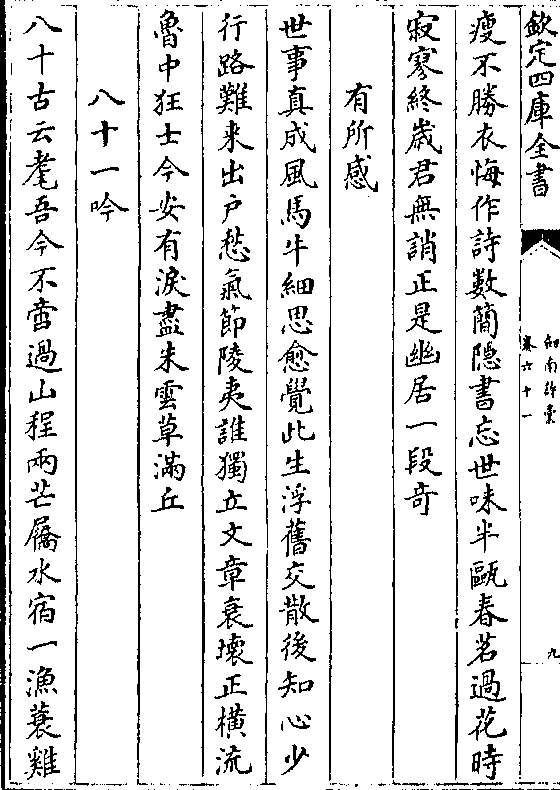 欽定四庫全書
劍南詩稾
卷六十一
九
瘦不勝衣悔作詩數簡隱書忘世味半甌春茗過花時
寂寥終歳君無誚正是幽居一段奇
有所感
世事真成風馬牛細思愈覺此生浮舊交散後知心少
行路難来出户愁氣節陵夷誰獨立文章衰壊正橫流
魯中狂士今安有淚盡朱雲草滿丘
八十一吟
八十古云耄吾今不啻過山程兩芒屩水宿一漁蓑雞